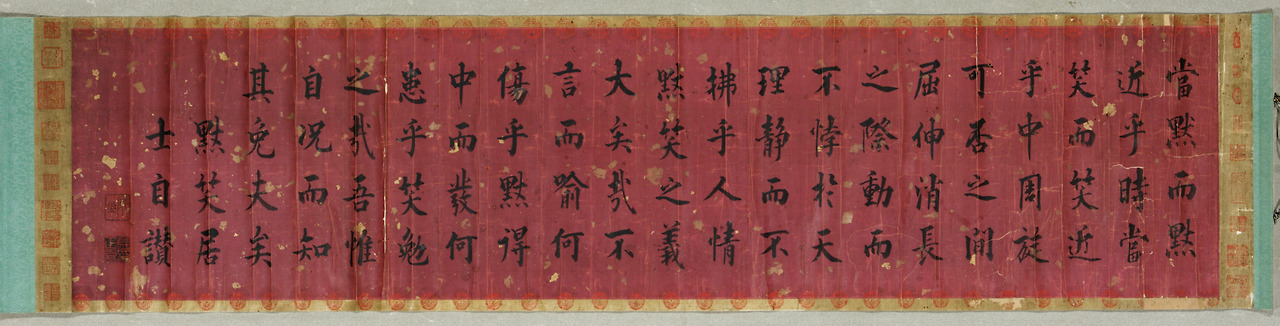 當默而默
近乎時當
笑而笑近
乎中周旋
可否之間
屈伸消長
之際動而
不悖於天
理靜而不
拂乎人情
默笑之義
大矣哉不
言而喻何
傷乎默得
中而發何
患乎笑勉
之哉吾惟
自况而知
其免夫矣
默笑居
士自讃